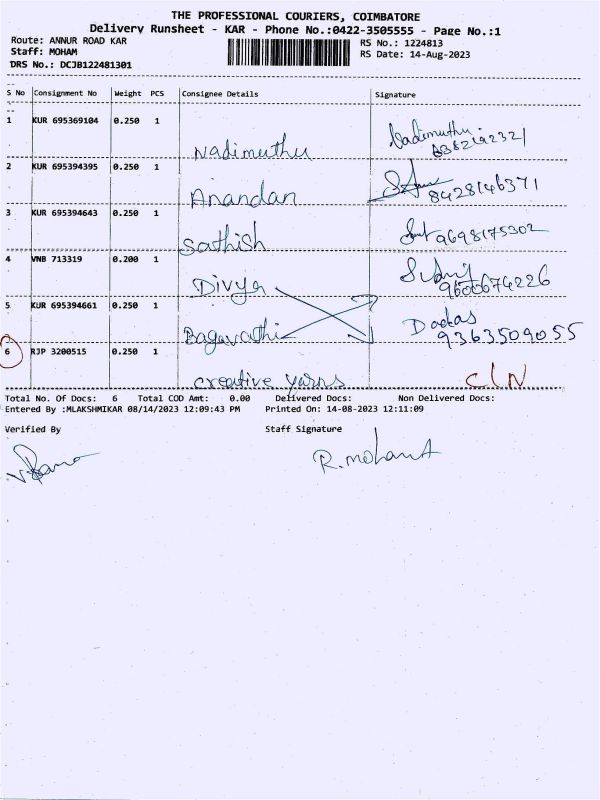 THE PROFESSIONAL COURIERS, COIMBATORE
Delivery Runsheet - KAR - Phone No.:0422-3505555 - Page No.:1
Route: ANNUR ROAD KAR
RS No.: 1224813
Staff: MOHAM
RS Date: 14-Aug-2023
DRS No.: DCJB122481301
S No Consignment No Weight PCS Consignee Details Signature
1 KUR 695369104 0.250 1
Nadimuthu
2 KUR 695394395 0.250 1
Anandan 8428146371
3 KUR 695394643 0.250 1
Sathish 9698175302
4 VNB 713319 0.200 1
Divya 9600674226
5 KUR 695394661 0.250 1
Bagavathi 9363509055
6 RJP 3200515 0.250 1
creative yarns CLN
Total No. Of Docs: 6 Total COD Amt: 0.00 Delivered Docs: Non Delivered Docs:
Entered By :MLAKSHMIKAR 08/14/2023 12:09:43 PM Printed On: 14-08-2023 12:11:09
Verified By Staff Signature
R.mohan